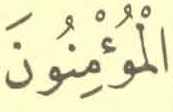 الْمُؤْمِنُونَ